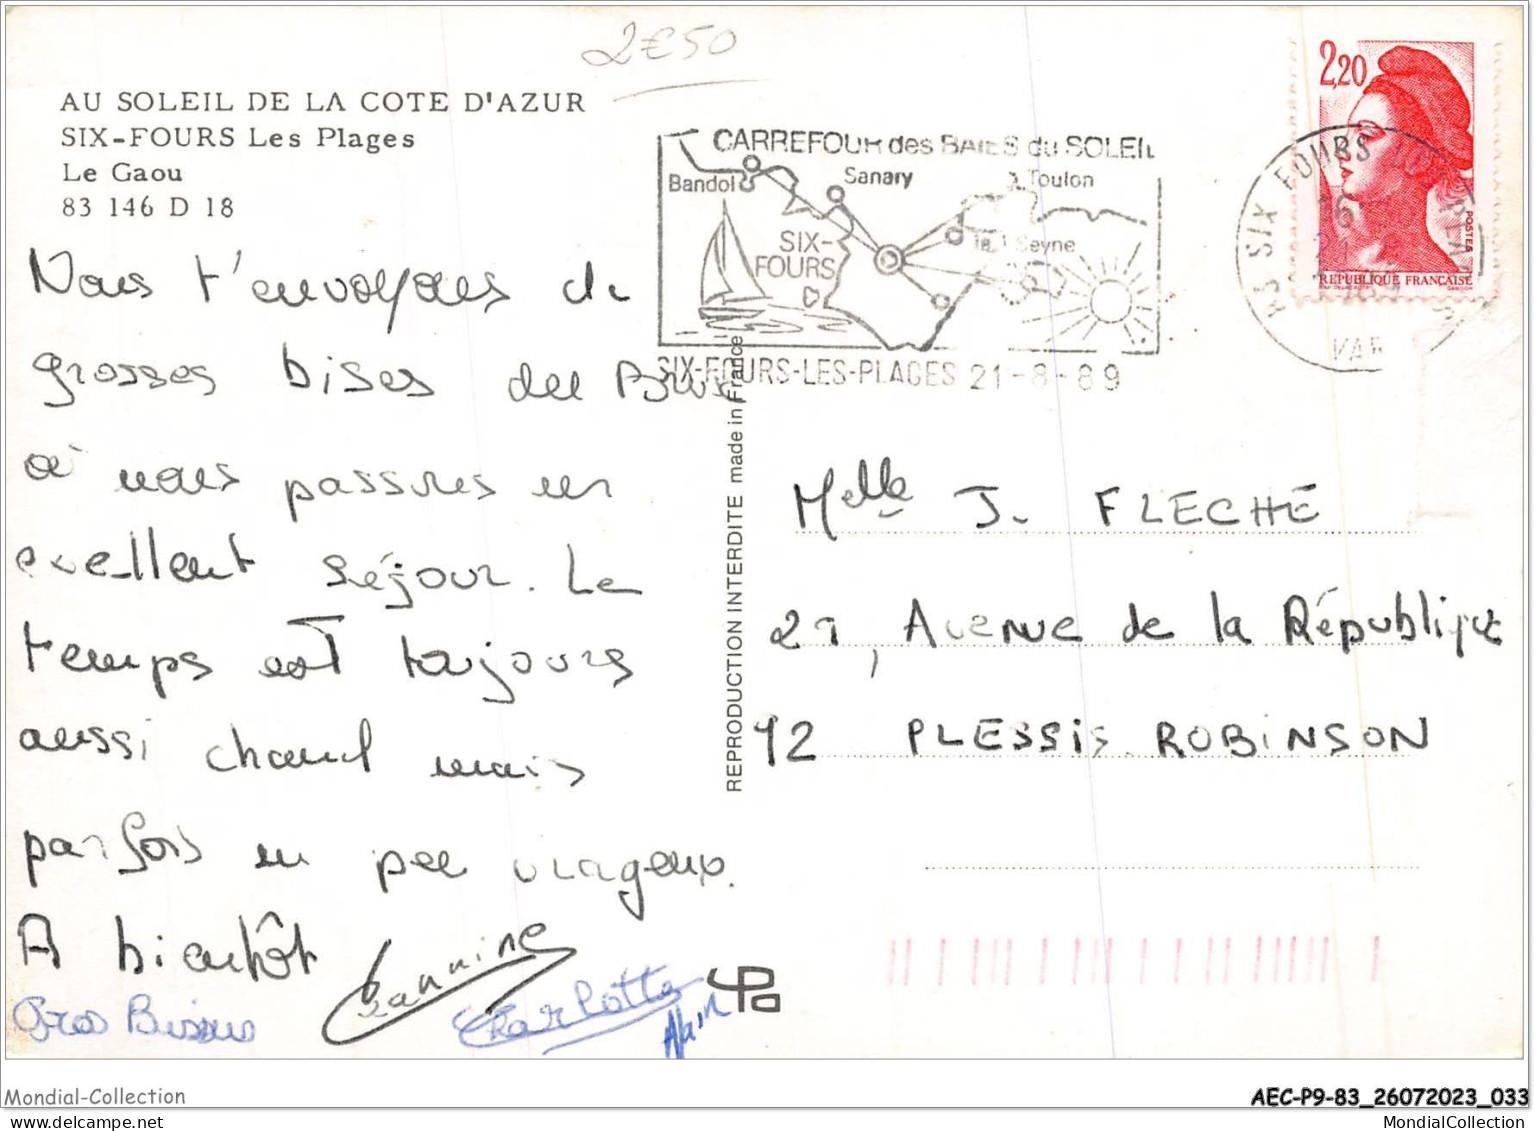 2€50
AU SOLEIL DE LA COTE D'AZUR
SIX-FOURS Les Plages
Le Gaou
83 146 D 18
Nous t'envoyons de
grosses bises du Brusc
où nous passons un
excellent séjour. Le
temps est toujours
aussi chaud mais
parfois un peu orageux.
A bientôt
Jeannine
Gros Bisous
Charlotte
Alain
CARREFOUR des BAIES du SOLEIL
Bandol
Sanary
Toulon
SIX-
FOURS
la Seyne
SIX-FOURS-LES-PLAGES 21-8-89
REPRODUCTION INTERDITE made in France
2,20
POSTES
REPUBLIQUE FRANÇAISE
SIX FOURS
VAR
Melle J. FLECHE
29, Avenue de la République
92 PLESSIS ROBINSON
Mondial-Collection
AEC-P9-83_26072023_033
MondialCollection